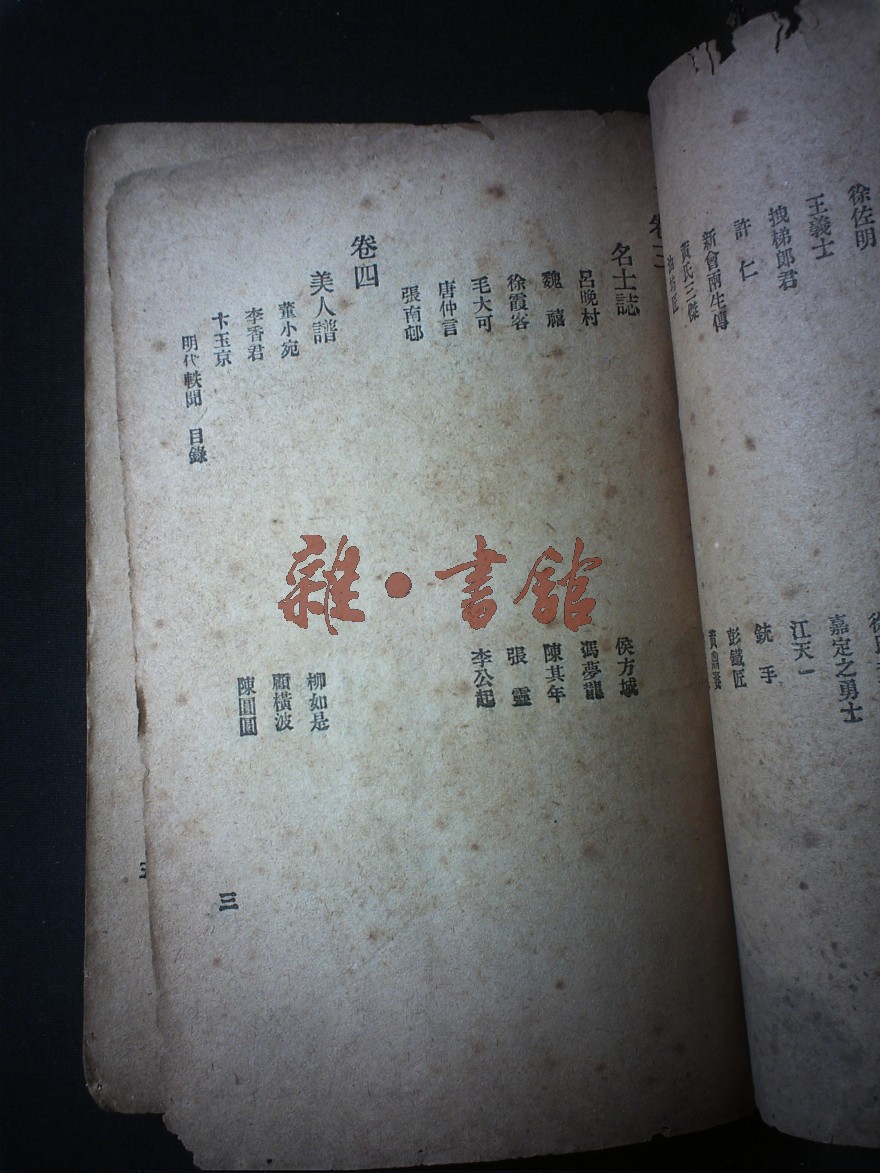 徐佐明
王義士
拽梯郎君
許仁
新會兩生傳
黃氏三傑
嘉定之勇士
江天一
銃手
彭鐵匠
卷三
名士誌
呂晚村
魏禧
徐霞客
毛大可
唐仲言
張南邨
侯方域
馮夢龍
陳其年
張靈
李公起
卷四
美人譜
董小宛
李香君
卞玉京
柳如是
顧橫波
陳圓圓
明代軼聞 目錄
三
雜·書館